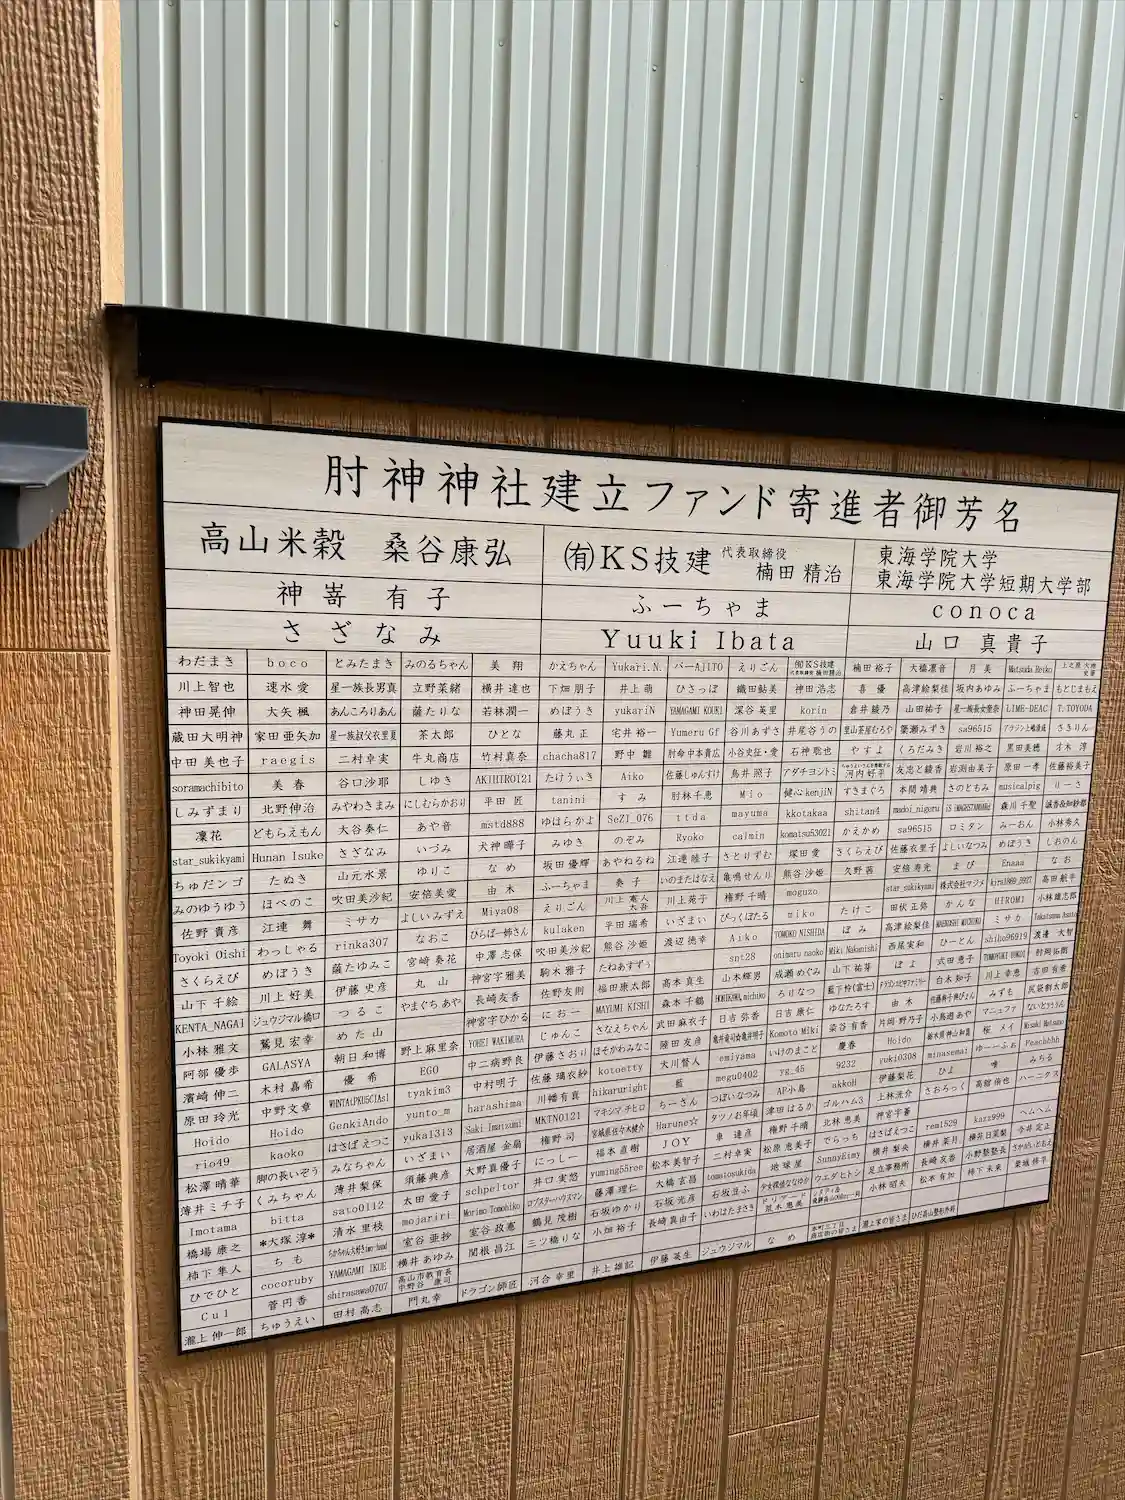 肘神神社建立ファンド寄進者御芳名
高山米穀 桑谷康弘 ㈲KS技建 代表取締役 楠田 精治 東海学院大学 東海学院大学短期大学部
神嵜 有子 ふーちゃま conoca
さざなみ Yuuki Ibata 山口 真貴子
わだまき boco とみたまき みのるちゃん 美 翔 かえちゃん Yukari.N. バーAJITO えりごん ㈲KS技建 代表取締役 楠田精治 楠田 裕子 大橋凛音 月 美 Matsuda Reiko
川上智也 速水 愛 星一族長男真 立野菜緒 横井 達也 下畑 朋子 井上 萌 ひさっぽ 織田鮎美 神田 浩志 喜 優 高津絵梨佳 坂内あゆみ ふーちゃま もとじまもえ
神田晃伸 大矢 楓 あんころりあん 薩たりな 若林潤一 めぼうき yukariN YAMAGAMI KOUKI 深谷 英里 korin 倉井 綾乃 山田祐子 星一族長女聖奈 LIME-DEAC T.TOYODA
蔵田大明神 家田 亜矢加 星一族叔父衣里夏 茶太郎 ひとな 藤丸 正 宅井 裕一 Yumeru Gf 谷川 あずさ 井尾谷うの 里山茶屋むろや 簗瀬みずき sa96515 さきりん
中田 美也子 raegis 二村卓実 牛丸商店 竹村真奈 chacha817 野中 雛 肘命中本貴広 小谷史征・愛 石神 聡也 やすよ くろだみき 岩川 裕之 黒田美穂 才木 淳
soramachibito 美 春 谷口沙耶 しゆき AKIHIRO121 たけうぃき Aiko 佐藤しゅんすけ 鳥井 照子 アダチヨシトミ 河内 好平 友忠と綾香 岩渕由美子 原田 一孝 佐藤裕美子
しみずまり 北野伸治 みやわきまみ にしむらかおり 平田 匠 tanini すみ 肘林千恵 Mio 健心kenjiN すきまぐろ 本間 靖典 さのともみ musicalpig りーさ
凜花 どもらえもん 大谷奏仁 あや音 mstd888 ゆはらかよ SeZI_076 ttda mayuma kkotakaa shitan4 madoi_nigoru 森川 千聖 誠香&知紗都
star_sukikyami Hunan Isuke さざなみ いづみ 犬神 曄子 みゆき のぞみ Ryoko calmin komatsu53021 かえかめ sa96515 ロミタン みーおん 小林秀久
ちゅだンゴ たぬき 山元水景 ゆりこ なめ 坂田 優輝 あやねるね 江連 睦子 さとりずむ 塚田 愛 さくらえび 佐藤衣里子 よしいなつみ めぼうき しおのん
みのゆうゆう ほべのこ 吹田美沙紀 安倍美愛 由 木 ふーちゃま 奏 子 いのまたはなえ 亀鳴せんり 熊谷 沙姫 久野 茜 安倍 寿光 まび Enaaa なお
佐野 貴彦 江連 舞 ミサカ よしいみずえ Miya08 えりごん 川上 憲人 大吾 川上苑子 権野 千晴 moguzo star_sukikyami 株式会社マジメ 高田 航平
Toyoki Oishi わっしゃる rinka307 なおこ ひらばー姉さん kulaken 平田 瑞希 いざまい びっくぽたる miko たけこ 田伏 正弥 かんな HIROMI 小林 雄志郎
さくらえび めぼうき 薩たゆみこ 宮崎 奏花 中澤 志保 吹田美沙紀 熊谷 沙姫 渡辺 徳幸 Aiko TOMOKO NISHIDA ぽみ 高津絵梨佳 ミサカ
山下 千絵 川上 好美 伊藤 史彦 丸 山 神宮字雅美 駒木 雅子 たねあすずぅ snt28 onimaru naoko Miki Nakanishi 西尾実和 ひーとん shiho96919 渡邉 大智
KENTA_NAGAI ジュウジマル橋口 つるこ やまぐち あや 長崎友香 佐野友則 福田康太郎 高本 真生 山本輝男 成瀬 めぐみ 山下 祐芽 ぽよ 武田 恵子 肘岡拓南
小林 雅文 鷲見 宏幸 めだ山 神宮字ひかる にお一 MAYUMI KISHI 森本 千鶴 HORIKAWA michiko ろりなつ 藍下 怜(富士) 白木 知子 川上 幸恵 吉田 有希
阿部 優歩 GALASYA 朝日 和博 野上 麻里奈 YOHEI WAKIMURA じゅんこ さなえちゃん 武田 麻衣子 日吉 弥香 日吉 康仁 ゆなたろす 由 木 みずも
濱崎 伸二 木村 嘉希 優 希 EGO 中二病野良 伊藤さおり ほそがわみなこ 陸田 友彦 Komoto Miki 染谷 有香 片岡 野乃子 小鳥遊 あや マニュファ
原田 玲光 中野文章 WHNTAtPKU5CIAs1 tyakim3 中村明子 佐藤 璃衣紗 kotoetty 大川賢人 emiyama いけのまこと 慶春 Hoido 桜 メイ Misaki Matsuno
Hoido Hoido GenkiAndo yunto_m harashima 川幡有真 hikaruright 藍 megu0402 yg_45 9232 yuki0308 minasemai ゆーーふぉ Peachhhh
rio49 kaoko はさば えつこ yuka1313 Saki Imaizumi MKTN0121 マキシマ チヒロ ちーさん つぼいなつみ AP小島 akkoH 伊藤梨花 ひよ 唯 みちる
松澤 晴華 脚の長いぞう みなちゃん いざまい 居酒屋 金扇 権野 司 宮城県佐々木健介 Harune☆ タツノお年頃 津田 はるか ゴルハム3 上林洸介 さおろっく ハーニクス
薄井 ミチ子 くみちゃん 薄井梨保 須藤典彦 大野真優子 にっしー 福本 直樹 JOY 車 達彦 権野 千晴 北林 恵美 神宮字蕃 rem1529 kazz999 ヘムヘム
Imotama bitta sato0112 太田 愛子 schpeltor 井口 実悠 yuming55ree 松本 美智子 二村卓実 松原 恵美子 でらっち はさばえつこ 横井 菜月 今井 定正
橋場 康之 *大塚 淳* 清水 里枝 mojariri Morimo Tomohiko ロブスターハウスマン 藤澤 理仁 大橋 玄昌 tomatosukida 地球屋 SunnyEimy 横井 梨央 長崎 友香 小野塾塾長
柿下 隼人 ちも 室谷 亜抄 室谷 政憲 鶴見 茂樹 石坂ゆかり 石坂 光彦 石坂豆ふ ウエダヒトシ 足立事務所 松本 有加 柿下 未来 葉城 柊平
ひでひと cocoruby YAMAGAMI IKUE 横井 あゆみ 関根 昌江 三ツ橋りな 小畑 裕子 長崎 真由子 いわはたまさき 荒木 恵美 小林 昭夫
Cul 菅円香 shirasawa0707 高山市教育長 中野谷 康司 ドラゴン師匠 河合 幸里 井上 雄記 伊藤 英生 ジュウジマル なめ
瀧上 伸一郎 ちゅうえい 田村 高志 門丸幸